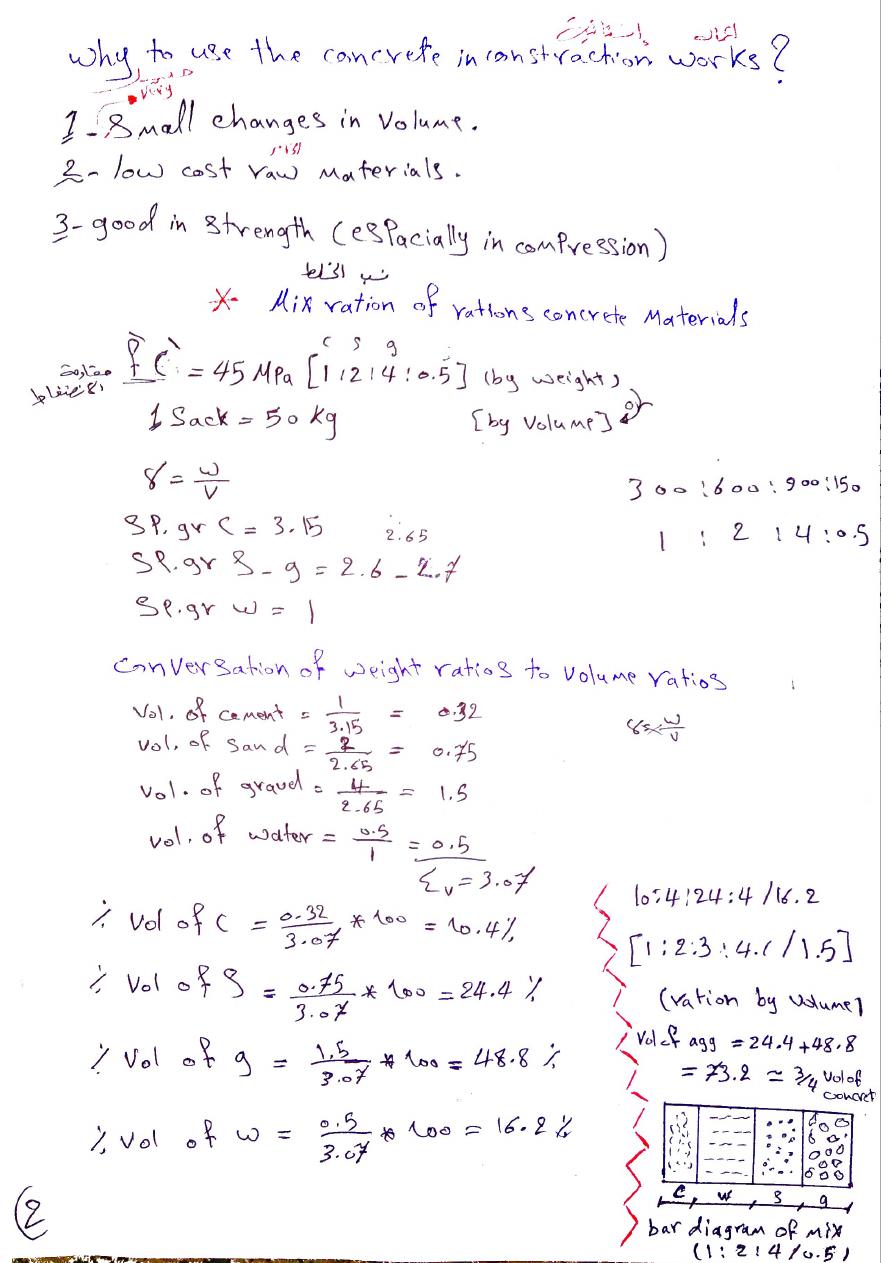 إنشائية اعمال
why to use the concrete in constraction works?
very
1- Small changes in volume.
الخام
2- low cost raw materials.
3- good in strength (espacially in compression)
نسب الخلط
* Mix ration of rations concrete Materials
c s g
مقاومة الانضغاط
f'c' = 45 MPa [1:2:4:0.5] (by weight)
or
1 Sack = 50 kg [by volume]
γ = w/v
300:600:900:150
SP.gr C = 3.15 2.65
1 : 2 : 4 : 0.5
SP.gr S - g = 2.6 - 2.7
SP.gr w = 1
Conversation of weight ratios to volume ratios
Vol. of cement = 1/3.15 = 0.32
γ = w/v
vol. of sand = 2/2.65 = 0.75
vol. of gravel = 4/2.65 = 1.5
vol. of water = 0.5/1 = 0.5
Σv = 3.07
% Vol of C = 0.32/3.07 * 100 = 10.4%
% Vol of S = 0.75/3.07 * 100 = 24.4 %
% Vol of g = 1.5/3.07 * 100 = 48.8 %
% vol of w = 0.5/3.07 * 100 = 16.2 %
(2
10.4:24:4/16.2
[1:2.3:4.6/1.5]
(ration by volume)
Vol of agg = 24.4 + 48.8
= 73.2 ≃ 3/4 Vol of
concret
C w S g
bar diagram of mix
(1:2:4/0.5)